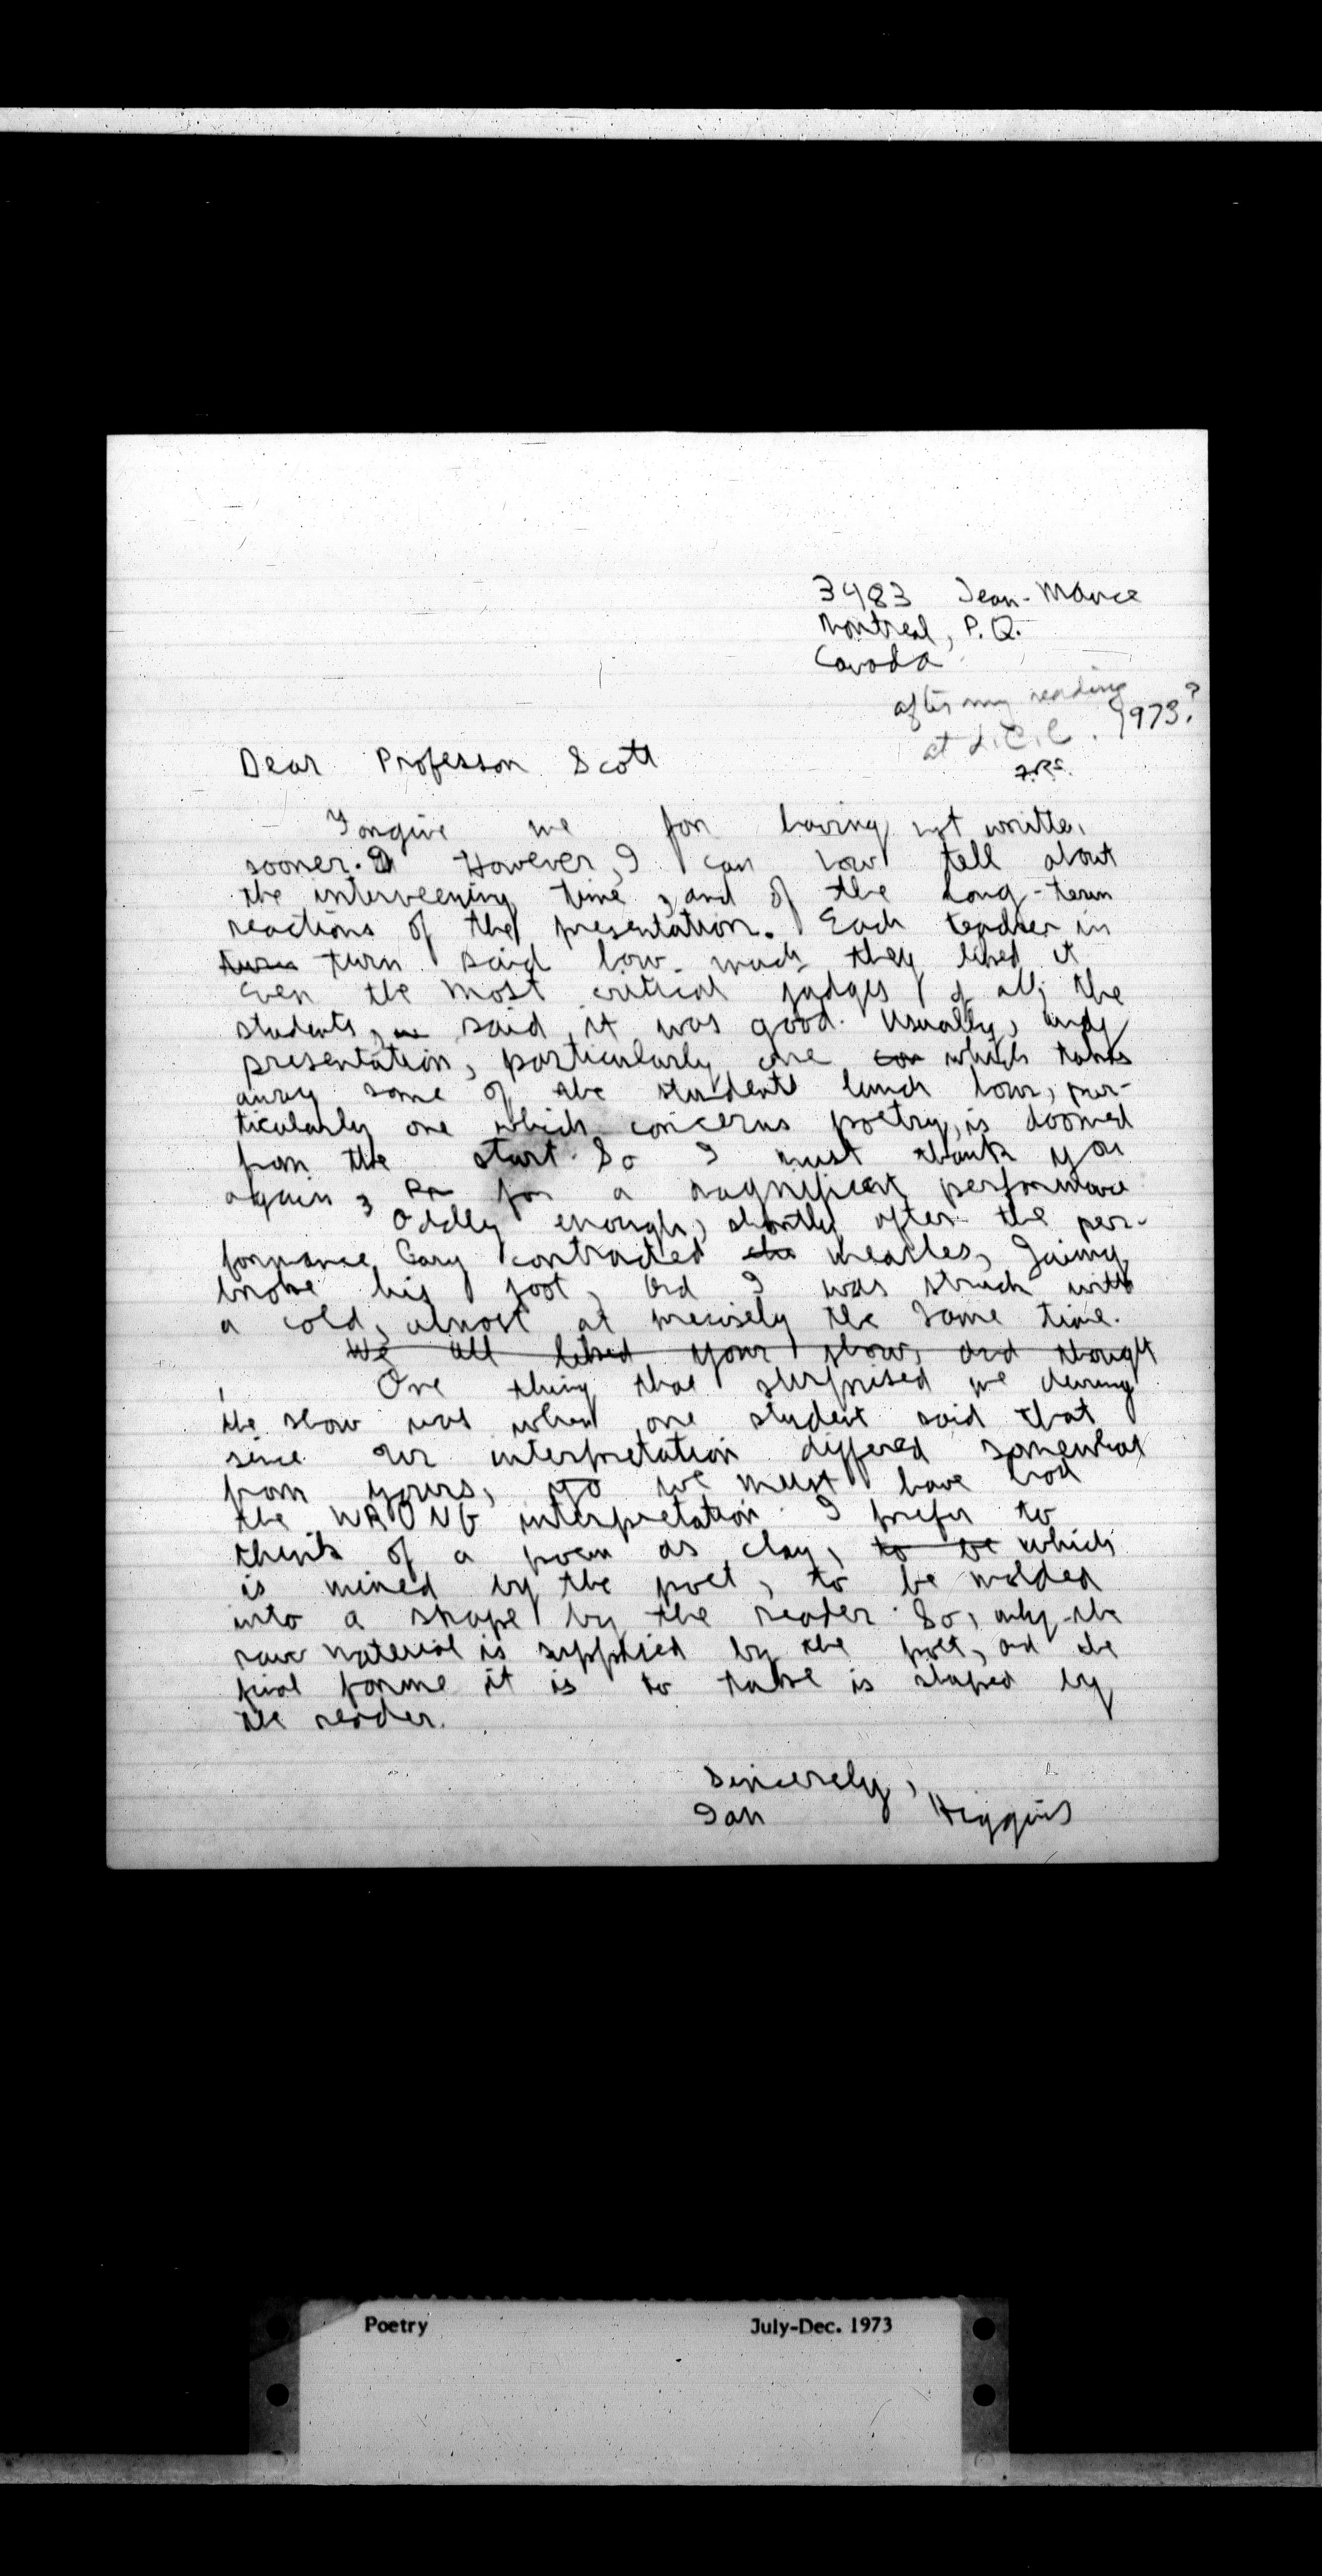 3483 Jean-Mance
Montreal, P.Q.
Canada
after my reading
at L.C.C. 1973?
F.R.S.
Dear Professor Scott
Forgive me for having not written
sooner. However, I can now tell about
the interveening time, and of the long-term
reactions of the presentation. Each teacher in
turn turn said how much they liked it
Even the most critical judges of all, the
students, said it was good. Usually, any
presentation, particularly one which takes
away some of the students lunch hour, par-
ticularly one which concerns poetry, is doomed
from the start. So I must thank you
again, for a magnificent performance
Oddly enough, shortly after the per-
formance Gary contracted measles, Jaimy
broke his foot, and I was struck with
a cold, almost at precisely the same time.
We all liked your show, and thought
One thing that surprised me during
the show was when one student said that
since our interpretation differed somewhat
from yours, we must have had
the WRONG interpretation. I prefer to
think of a poem as clay, to be which
is mined by the poet, to be molded
into a shape by the reader. So, only the
raw material is supplied by the poet, and the
final forme it is to take is shaped by
the reader.
Sincerely,
Ian Higgins
Poetry July-Dec. 1973